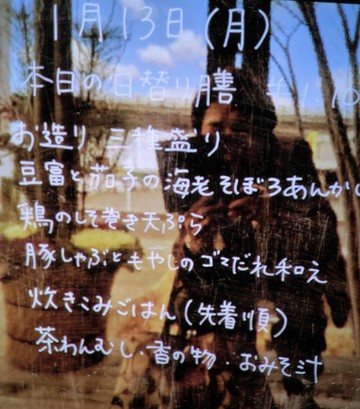 1月13日(月)
本日の日替り膳
お造り 三種盛り
豆富と茄子の海老そぼろあんか
鶏のしそ巻き天ぷら
豚しゃぶともやしのゴマだれ和え
炊きこみごはん(先着順)
茶わんむし・香の物・おみそ汁